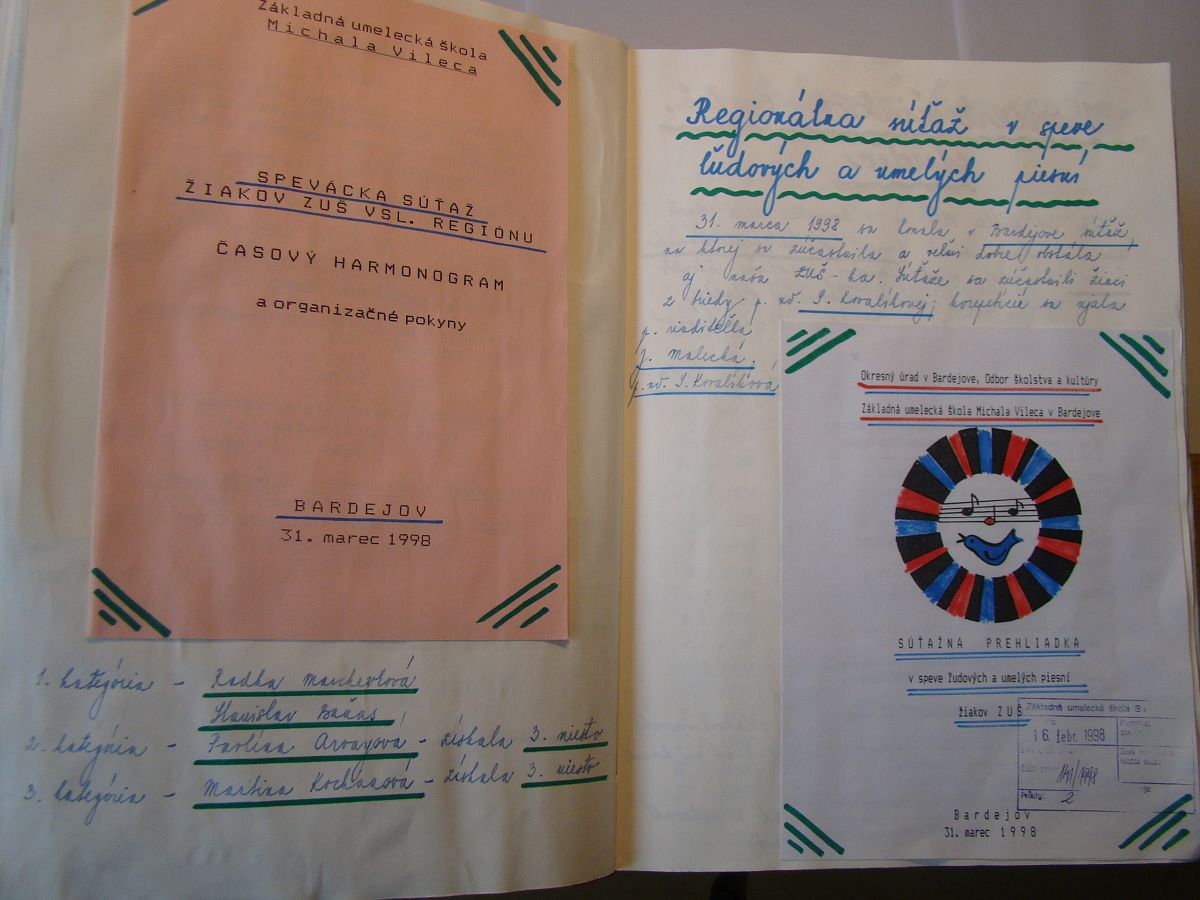 Základná umelecká škola
Michala Vileca
SPEVÁCKA SÚŤAŽ
ŽIAKOV ZUŠ VSL. REGIÓNU
ČASOVÝ HARMONOGRAM
a organizačné pokyny
BARDEJOV
31. marec 1998
1. kategória - Radka
Stanislav Baňas
2. kategória - Pavlína Arvayová - získala 3. miesto
3. kategória - Martina Kochanová - získala 3. miesto
Regionálna súťaž v speve
ľudových a umelých piesní
31. marca 1998 sa konala v Bardejove súťaž,
na ktorej sa zúčastnila a veľmi dobre obstála
aj naša ZUŠ-ka. Súťaže sa zúčastnili žiaci
z triedy p. uč. S. Kovalíkovej, korepetície sa ujala
p. riaditeľka
J. Malecká.
p. uč. S. Kovalíková
Okresný úrad v Bardejove, Odbor školstva a kultúry
Základná umelecká škola Michala Vileca v Bardejove
SÚŤAŽNÁ PREHLIADKA
v speve ľudových a umelých piesní
žiakov ZUŠ
Základná umelecká škola
16. febr. 1998
Číslo 141/1998
Prílohy: 2
Bardejov
31. marec 1998